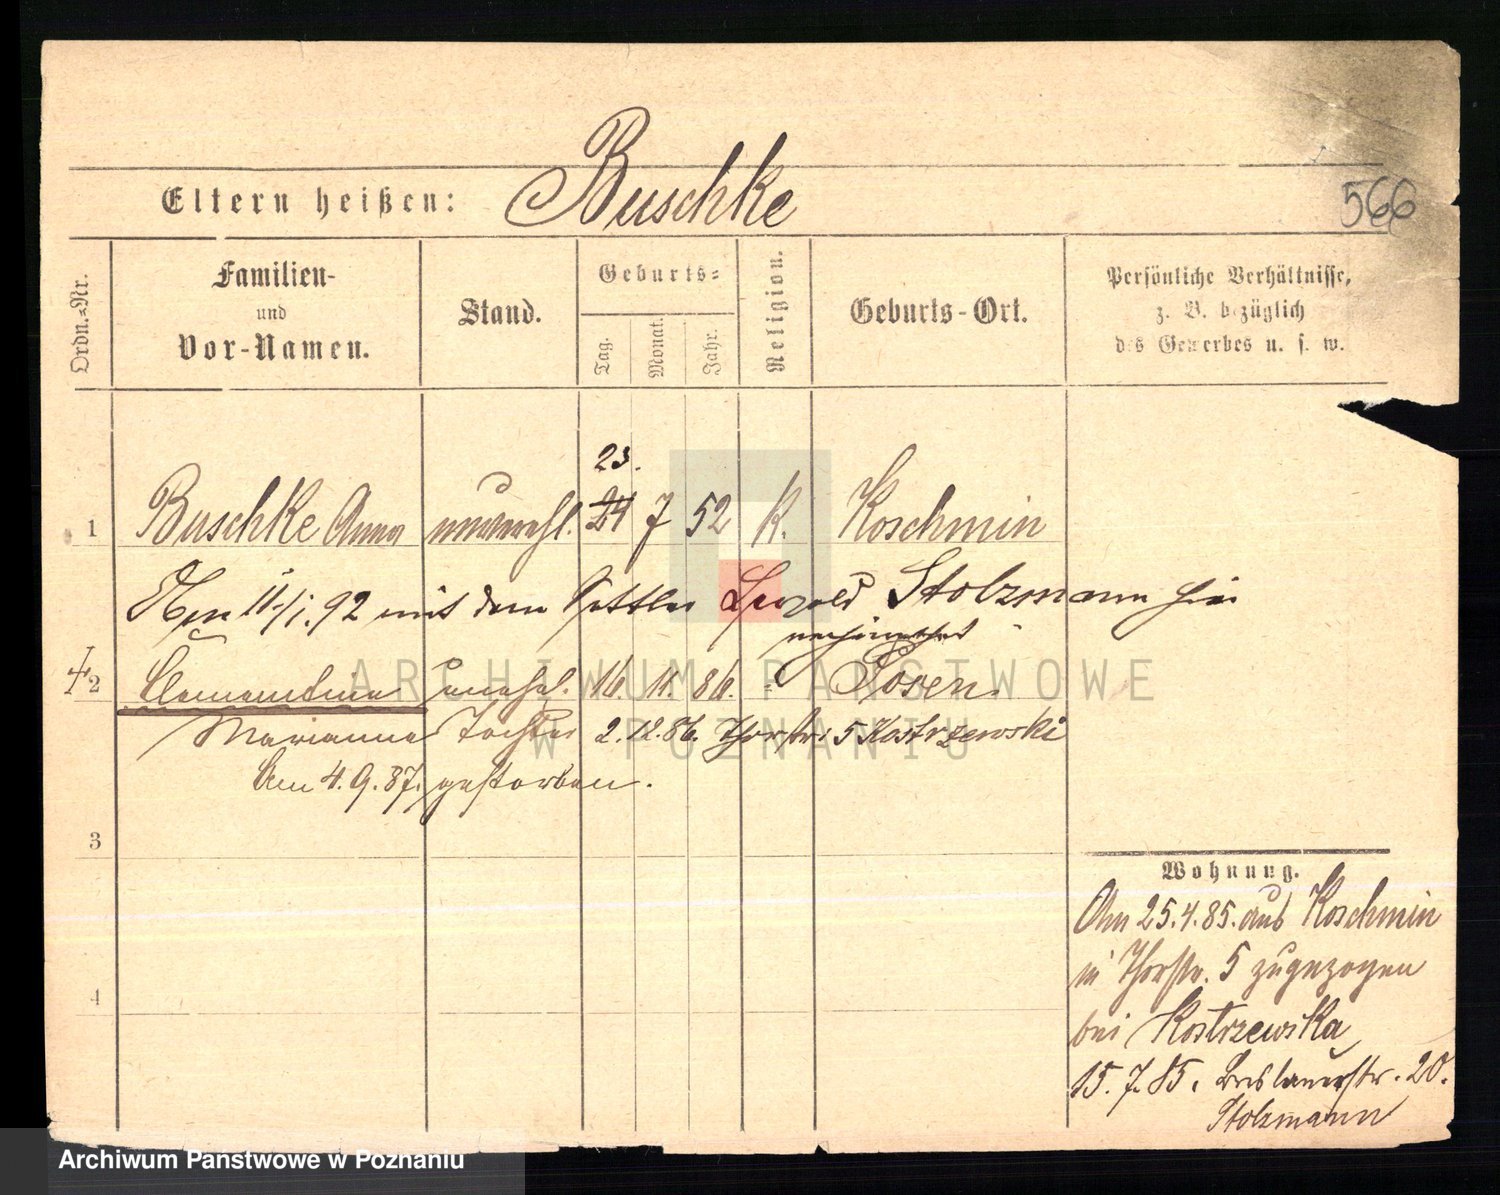 566
Eltern heißen: Buschke
Ordn.-Nr.
Familien-
und
Vor-Namen.
Stand.
Geburts-
Tag.
Monat.
Jahr.
Religion.
Geburts-Ort.
Persönliche Verhältnisse,
z. B. bezüglich
des Gewerbes u. s. w.
23.
1 Buschke Anna unverehl. 24 7 52 K. Koschmin
Am 11./1. 92 mit dem Sattler Leopold Stolzmann hier
verheirathet
2 Clementine unehel. 16. 11. 86. " Posen
Marianne Tochter 2. 12. 86. Thorstr. 5 Kostrzewski
Am 4. 9. 87. gestorben.
3
4
Wohnung.
Am 25.4.85. aus Koschmin
in Thorstr. 5 zugezogen
bei Kostrzewska
15. 7. 85. Breslauerstr. 20.
Stolzmann
ARCHIWUM PAŃSTWOWE
W POZNANIU
Archiwum Państwowe w Poznaniu